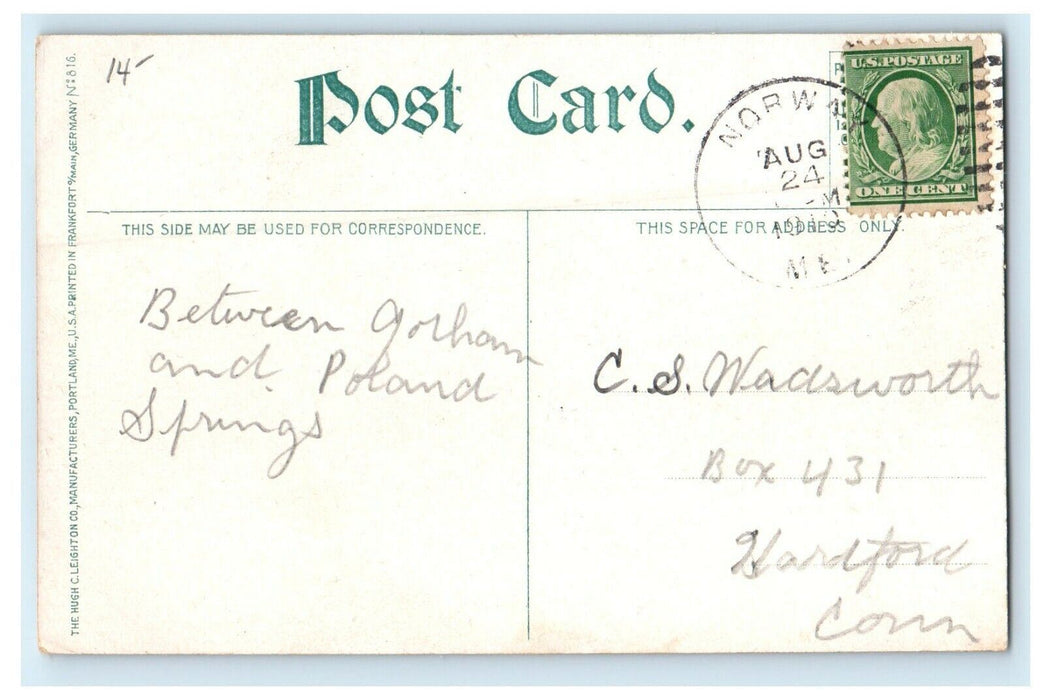 14-
Post Card.
U.S. POSTAGE
ONE CENT
NORWAY
AUG
24
M
1910
ME.
THIS SIDE MAY BE USED FOR CORRESPONDENCE.
THIS SPACE FOR ADDRESS ONLY.
Between Gorham
and Poland
Springs
C. S. Wadsworth
Box 431
Hardford
Conn
THE HUGH C. LEIGHTON CO., MANUFACTURERS, PORTLAND, ME., U.S.A. PRINTED IN FRANKFORT o/MAIN, GERMANY No 816.